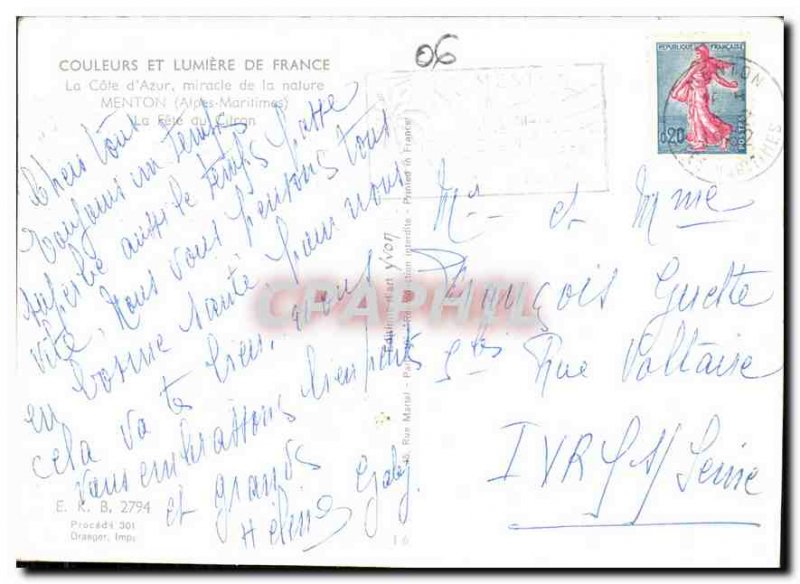 COULEURS ET LUMIÈRE DE FRANCE
La Côte d'Azur, miracle de la nature
MENTON (Alpes-Maritimes)
La Fête du Citron
Chers tous
Toujours un temps
superbe aussi le temps passe
vite. Nous vous pensons tous
en bonne santé, pour nous
cela va très bien, nous
vous embrassons bien petits
et grands
Hélène Gaby
E. K. B. 2794
Procédé 301
Draeger, Imp.
06
Editions d'art Yvon
Rue Martel - Reproduction interdite - Printed in France
16
REPUBLIQUE FRANÇAISE
0,20
POSTES
MENTON
CPAPHIL
Mr et Mme
François Guette
5 bis Rue Voltaire
IVRY S/ Seine